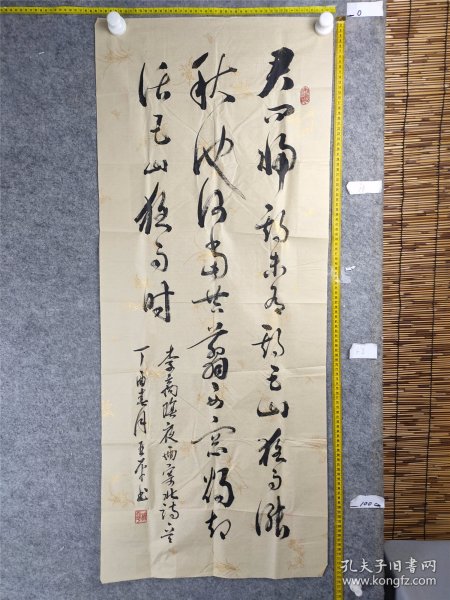 君问归期未有期巴山夜雨涨
秋池何当共翦西窗烛却
话巴山夜雨时
李商隐夜雨寄北诗
丁酉春月书
0
100cm
孔夫子旧书网
www.kongfz.com